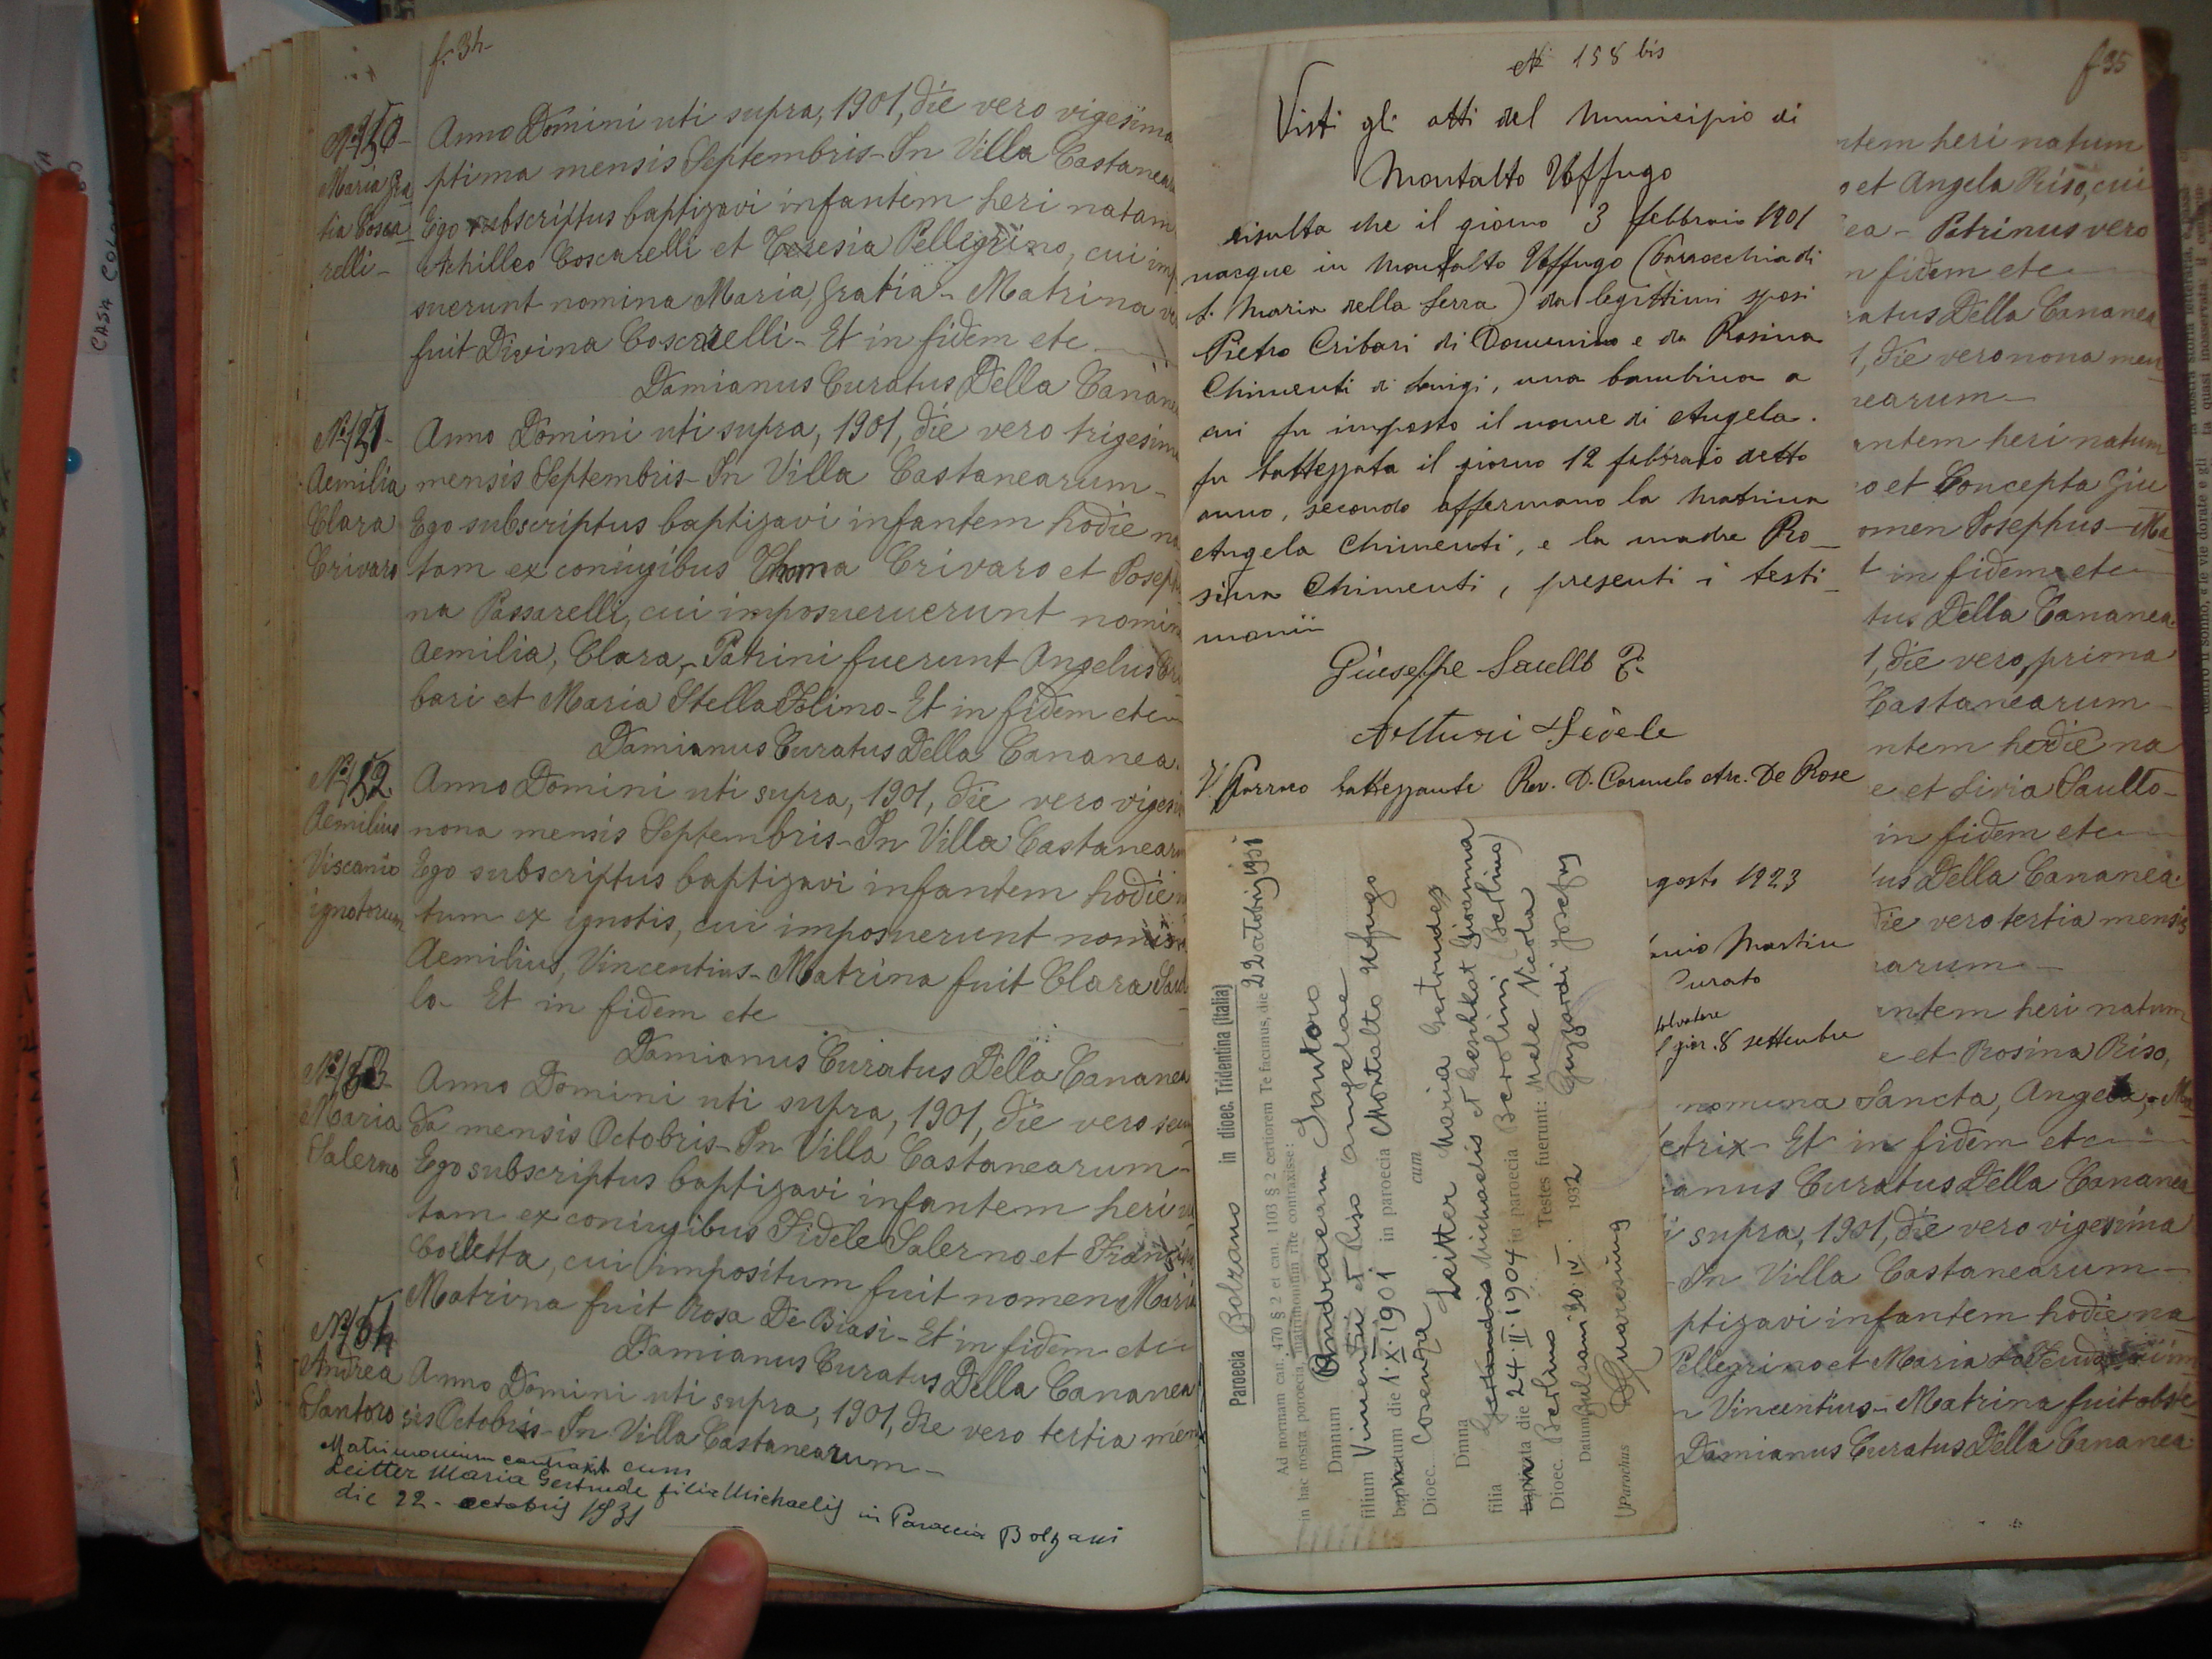 f. 34-
No 150-
Maria Gra
tia Cosca
relli-
Anno Domini uti supra, 1901, die vero vigesima
ptima mensis Septembris - In Villa Castanearu
Ego subscriptus baptizavi infantem heri natam
Achilleo Coscarelli et Teresia Pellegrino, cui imp
suerunt nomina Maria, Gratia - Matrina ve
fuit Divina Coscarelli - Et in fidem etc
Damianus Curatus Della Canane
No 151-
Aemilia
Clara
Crivaro
Anno Domini uti supra, 1901, die vero trigesima
mensis Septembris - In Villa Castanearum -
Ego subscriptus baptizavi infantem hodie na
tam ex coniugibus Thoma Crivaro et Joseph
na Passarelli, cui imposueruerunt nomina
Aemilia, Clara, - Patrini fuerunt Angelus Cri
bari et Maria Stella Folino - Et in fidem etc
Damianus Curatus Della Cananea.
No 152.
Aemilius
Viscanio
ignotorum
Anno Domini uti supra, 1901, die vero vigesi
nona mensis Septembris - In Villa Castanearu
Ego subscriptus baptizavi infantem hodie n
tum ex ignotis, cui imposuerunt nomina
Aemilius, Vincentius - Matrina fuit Clara Saul
lo - Et in fidem etc
Damianus Curatus Della Cananea
No 153-
Maria
Salerno
Anno Domini uti supra, 1901, die vero secun
da mensis Octobris - In Villa Castanearum -
Ego subscriptus baptizavi infantem heri na
tam ex coniugibus Fidele Salerno et Franci
Colletta, cui impositum fuit nomen Maria
Matrina fuit Rosa De Biasi - Et in fidem etc
Damianus Curatus Della Cananea
No 154
Andrea
Santoro
Anno Domini uti supra, 1901, die vero tertia men
sis Octobris - In Villa Castanearum -
Matrimonium contraxit cum
Leitter Maria Gertrude filia Michaelis in Paroecia Bolzani
die 22 - octobris 1931
No 158 bis
f 35
Visti gli atti del Municipio di
Montalto Uffugo
risulta che il giorno 3 febbraio 1901
nacque in Montalto Uffugo (Parrocchia di
S. Maria della Serra) dai legittimi sposi
Pietro Cribari di Domenico e da Rosina
Chimenti di Luigi, una bambina a
cui fu imposto il nome di Angela.
fu battezzata il giorno 12 febbraio detto
anno, secondo affermano la matrina
Angela Chimenti, e la madre Ro-
sina Chimenti, presenti i testi-
monii
Giuseppe Saullo
Arturi Fedele
Il Parroco battezzante Rev. D. Carmelo Arc. De Rose
gosto 1923
Martin
Curato
Salvatore
8 settembre
Paroecia Bolzano in dioec. Tridentina (Italia)
Ad normam can. 470 § 2 et can. 1103 § 2 certiorem Te facimus, die 22 octobris 1931
in hac nostra paroecia, matrimonium rite contraxisse:
Dmnum Andraeam Santoro
filium Vincentii et Riso Angelae
baptizatum die 1·X·1901 in paroecia Montalto Ufugo
Dioec. Cosenza
cum
Dmna Leitter Maria Gertrudes
filia Michaelis et Giovanna
die 24·II·1904 in paroecia Berolini (Berlino)
Dioec. Berlino Testes fuerunt: Mele Nicola
Guggardi Josefus
Datum Bulsani 30 IV. 1932
Parochus
ntem heri natum
o et Angela Riso, cui
ea - Patrinus vero
n fidem etc
ratus Della Cananea
1, die vero nona men
nearum -
antem heri natum
o et Concepta Giu
omen Josephus - Ma
t in fidem etc
tus Della Cananea.
1, die vero prima
Castanearum -
ntem hodie na
e et Livia Saullo -
in fidem etc
us Della Cananea.
die vero tertia mensis
arum -
antem heri natum
e et Rosina Riso,
nomina Sancta, Angela, - Ma
etrix - Et in fidem etc
anus Curatus Della Cananea
i supra, 1901, die vero vigesima
- In Villa Castanearum -
ptizavi infantem hodie na
Pellegrino et Maria
n Vincentius - Matrina fuit obste
Damianus Curatus Della Cananea.